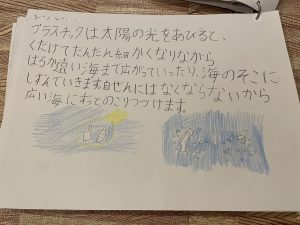 プラスチックは太陽の光をあびると、
くだけてだんだん細かくなりながら
はるか遠い海まで広がっていったり、海のそこに
しずんでいきます。自ぜんにはなくならないから
広い海にずっとのこりつづけます。